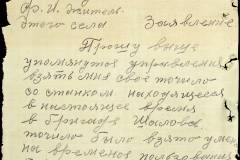 Ф. И. житель
этого села Заявление
Прошу выше
упомянутое управление
взять мня свое точило
со станком находящееся
в настоящее время
в бригаде Шаповсе
точило было взято у мен
на временое пользован